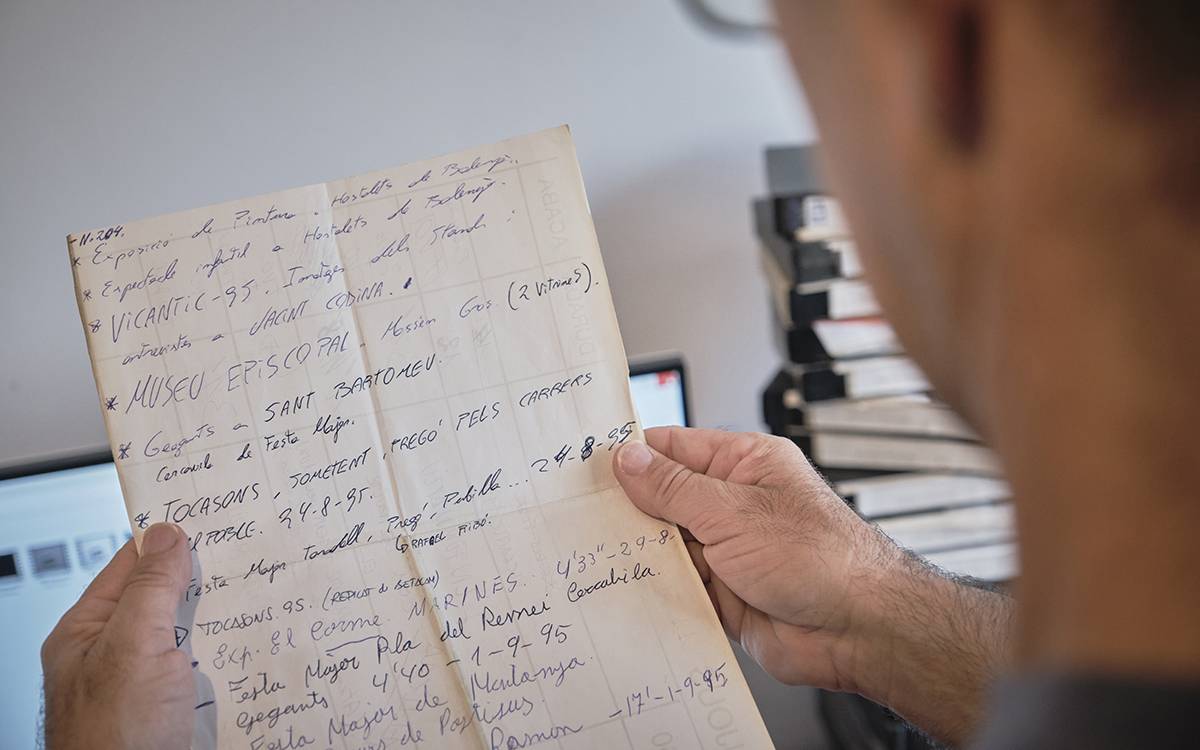 -N.204.
* Exposició de Pintura. Hostalets de Balenyà.
* Espectacle infantil a Hostalets de Balenyà.
* ViCANTiC-95. Imatges dels Stands.
entrevistes a JACINT CODINA.
* MUSEU EPiSCOPAL. Mossèn Gros. (2 VitrineS).
* Gegants a SANT BARTOMEU.
Cercavila de Festa Major.
* TOCASONS, SOMETENT, PREGÓ PELS CARRERS
POBLE. 24-8-95.
Festa Major Taradell, Pregó, Pubilla... 24-8-95
RAFAEL RIBÓ.
TOCASONS. 95. (REPICÓ de
Exp. El Carme. MARINES. 4'33"-29-8-
Festa Major Pla del Remei
Gegants 4'40 - 1-9-95
Festa Major de Muntanya.
de
Ramon -17'-1-9-95